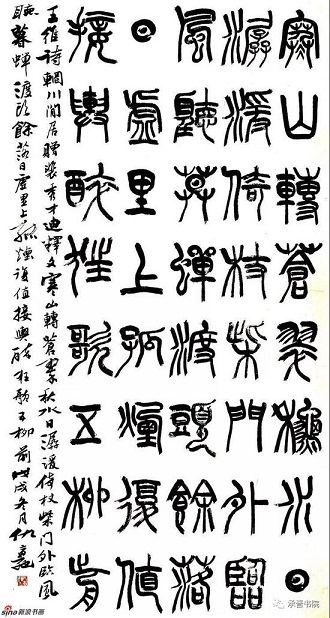 寒山轉蒼翠秋水日
潺湲倚杖柴門外臨
風聽莫蟬渡頭餘落
日虛里上孤煙復值
接輿醉狂歌五柳前
王維詩輞川閒居贈裴秀才迪釋文寒山轉蒼翠秋水日潺湲倚杖柴門外臨風
聽暮蟬渡頭餘落日虛里上孤煙復值接輿醉狂歌五柳前戊戌冬月仇
sina新浪书画
承晋书院